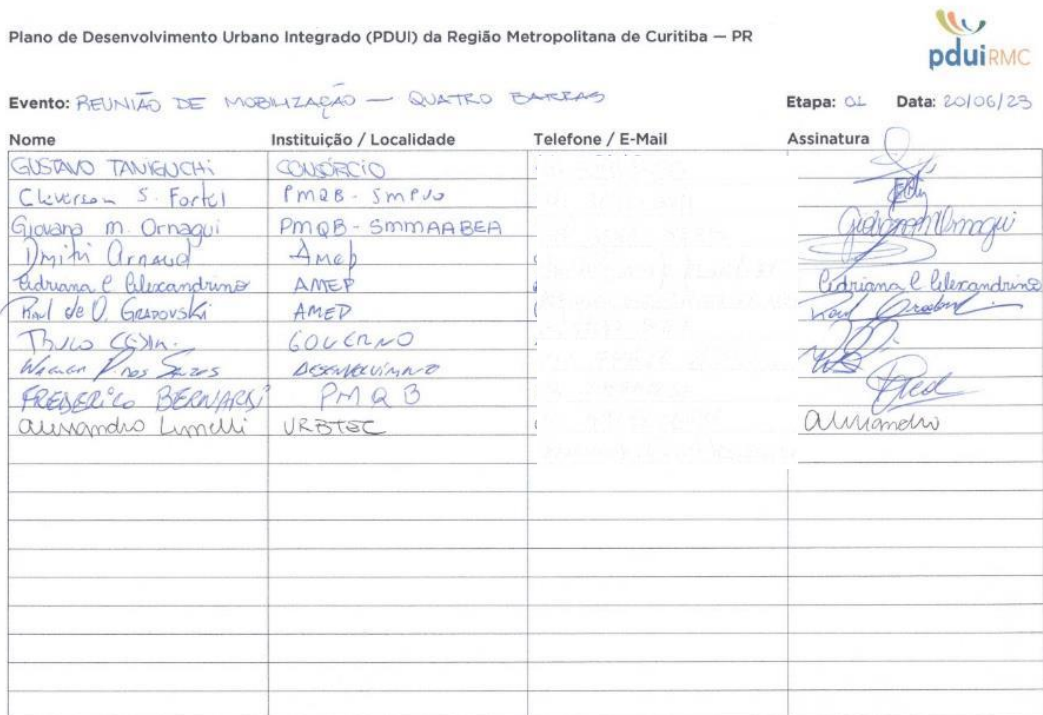 Plano de Desenvolvimento Urbano Integrado (PDUI) da Região Metropolitana de Curitiba — PR
pduiRMC
Evento: REUNIÃO DE MOBILIZAÇÃO — QUATRO BARRAS Etapa: 01 Data: 20/06/23
Nome Instituição / Localidade Telefone / E-Mail Assinatura
GUSTAVO TANIGUCHI CONSÓRCIO
Cleverson S. PMQB - SMPUO
Giovana M. Ornagui PMQB - SMMAABEA Giovana M Ornagui
Dmitri Arnaud Amep
Adriana C. Alexandrino AMEP Adriana C Alexandrino
Raul de O. Gradovski AMEP Raul
GOVERNO
DESENVOLVIMENTO
FREDERICO BERNARDI PMQB Fred
Alessandro Lunelli URBTEC Alessandro